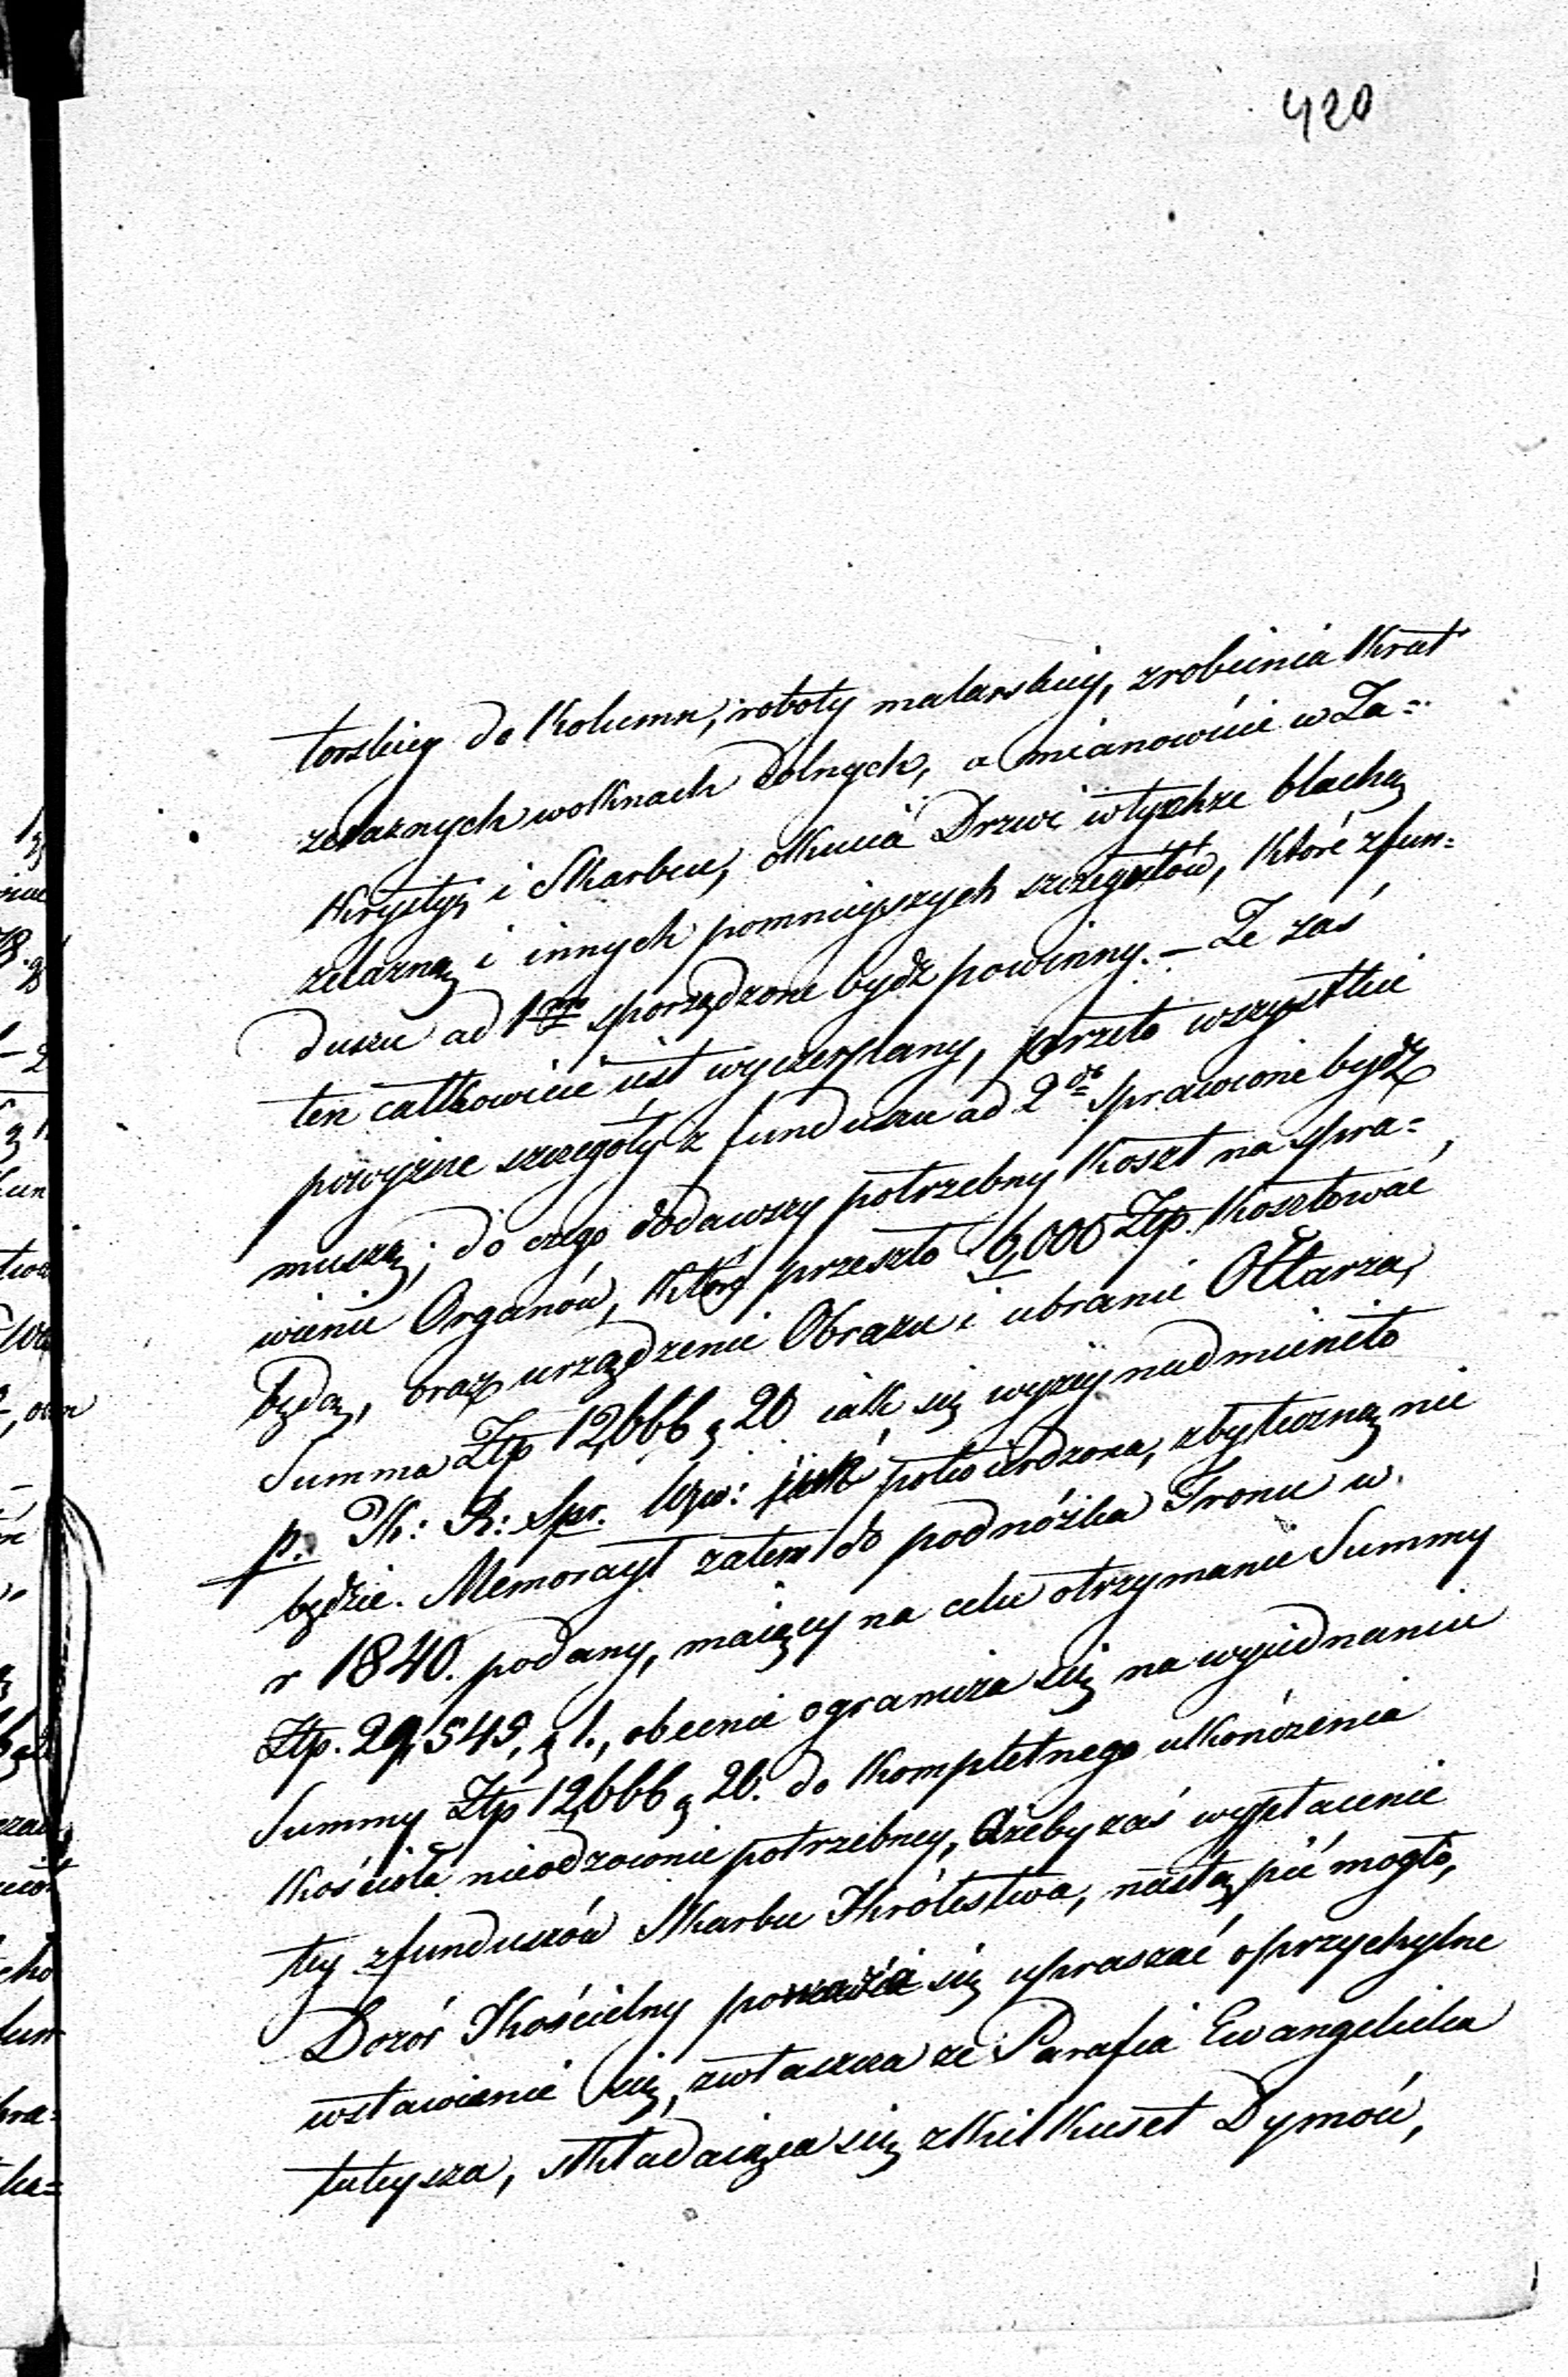 420
torskiey do Kolumn, roboty malarskiey, zrobienia Krat
żelaznych w oknach dolnych, a mianowicie w Za=
krystyi i Skarbcu, okucia Drzwi w tychże blachą
żelazną i innych pomnieyszych szczegółów, które z fun=
duszu ad 1mo sporządzone bydź powinny. — Że zaś
ten całkowicie iest wyczerpany, przeto wszystkie
powyższe szczegóły z funduszu ad 2do sprawione bydź
muszą; do czego dodawszy potrzebny koszt na spra=
wienie Organów, które przeszło 6,000 Złp. kosztować
będą, oraz urządzenie Obrazu i ubranie Ołtarza,
Summa Złp 12,666 g 20 iak się wyżey nadmieniło
p. K: R: Spr. Wew: potwierdzona, zbyteczną nie
będzie. Memoryał zatem do podnóżka Tronu w
r 1840. podany, maiący na celu otrzymanie Summy
Złp. 29,549, g 1., obecnie ogranicza się na wyiednaniu
Summy Złp 12,666 g 20. do kompletnego ukończenia
Kościoła nieodzownie potrzebney, Ażeby zaś wypłacenie
tey z funduszów Skarbu Królestwa, nastąpić mogło,
Dozór Kościelny poważa się upraszać o przychylne
wstawienie się, zwłaszcza że Parafia Ewangelicka
tuteysza, składaiąca się z kilkuset Dymów,